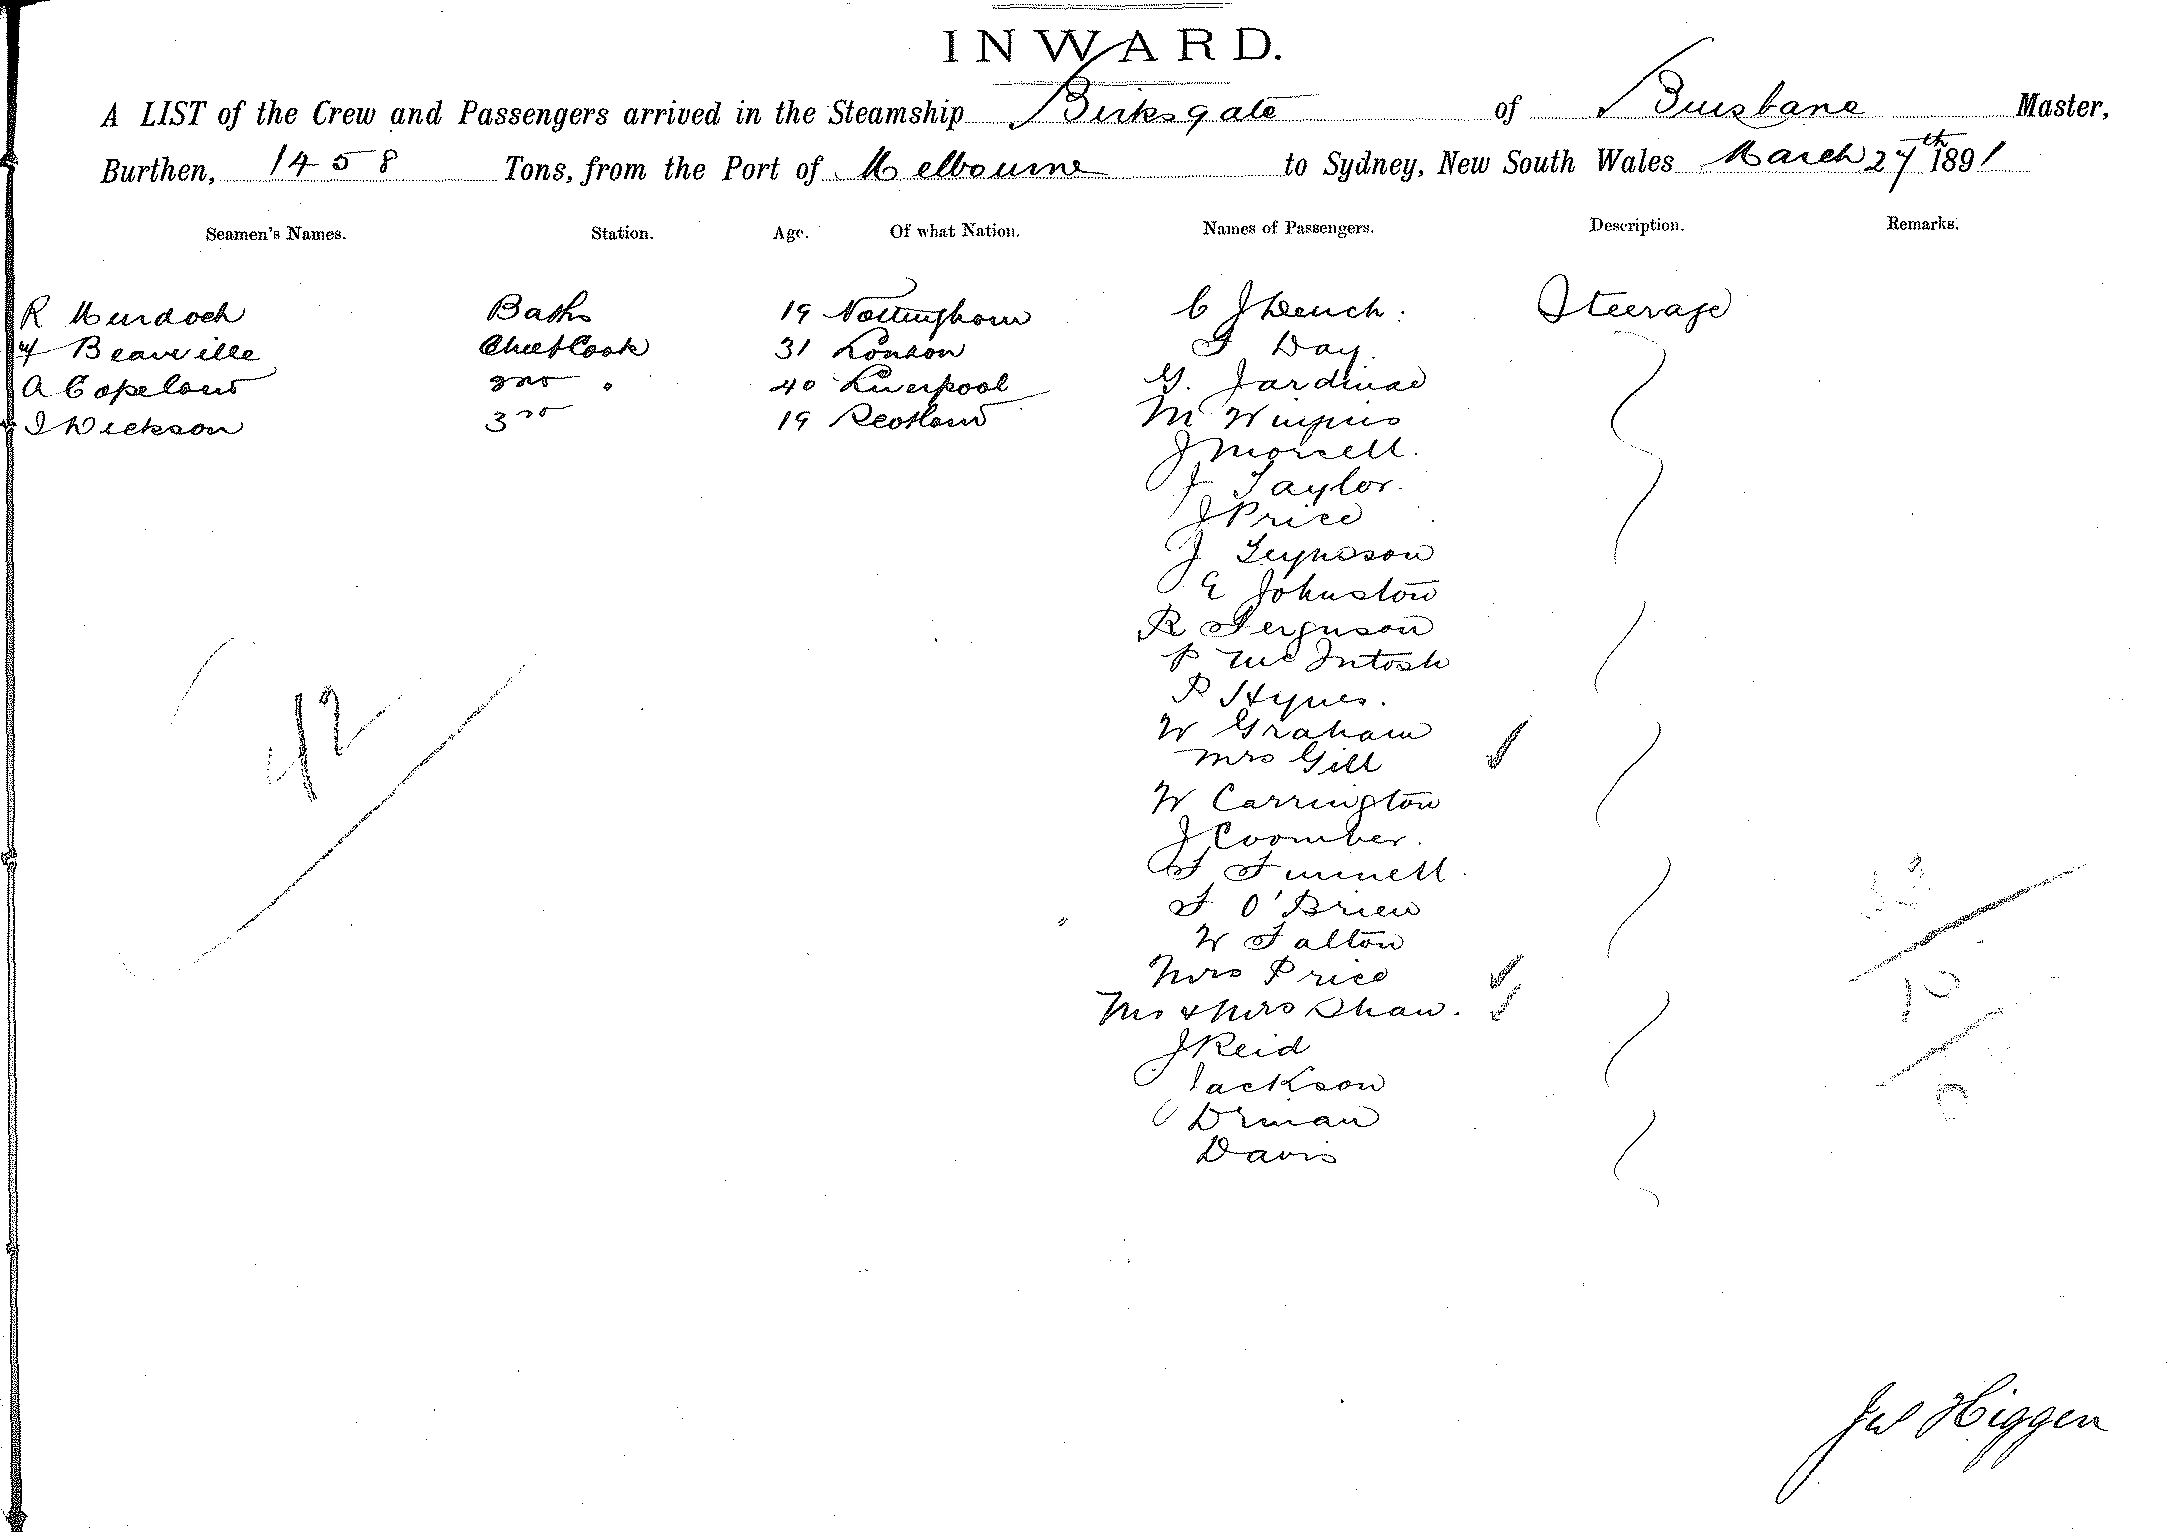 INWARD.
A LIST of the Crew and Passengers arrived in the Steamship Birksgate of Brisbane Master,
Burthen, 1458 Tons, from the Port of Melbourne to Sydney, New South Wales March 27th 1891
Seamen's Names. Station. Age. Of what Nation. Names of Passengers. Description. Remarks.
R Murdoch Baths 19 Nottingham C J Dench. Steerage
Beauville Chief Cook 31 London F Day.
A Copeland 2nd " 40 Liverpool G. Jardine
J Dickson 3rd 19 Scotland M
J Morsell.
J Taylor.
J Price
J
E Johnston
R Ferguson
P McIntosh
P Hynes.
W Graham
Mrs Gill
W Carrington
J Coomber.
F Funnell.
F O'Brien
W Falton
Mrs Price
Mr & Mrs Shaw.
J Reid
Jackson
Drman
Davis
42
32
10
Jno Higgen